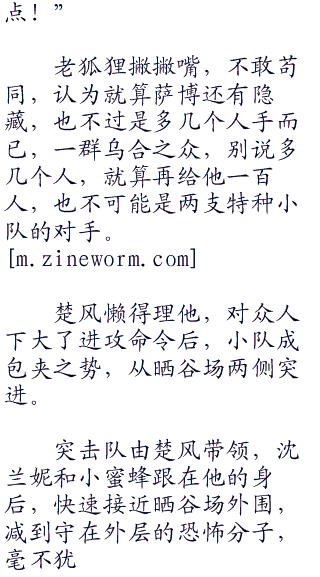 点！”
老狐狸撇撇嘴，不敢苟
同，认为就算萨博还有隐
藏，也不过是多几个人手而
已，一群乌合之众，别说多
几个人，就算再给他一百
人，也不可能是两支特种小
队的对手。
[m.zineworm.com]
楚风懒得理他，对众人
下大了进攻命令后，小队成
包夹之势，从晒谷场两侧突
进。
突击队由楚风带领，沈
兰妮和小蜜蜂跟在他的身
后，快速接近晒谷场外围，
减到守在外层的恐怖分子，
毫不犹